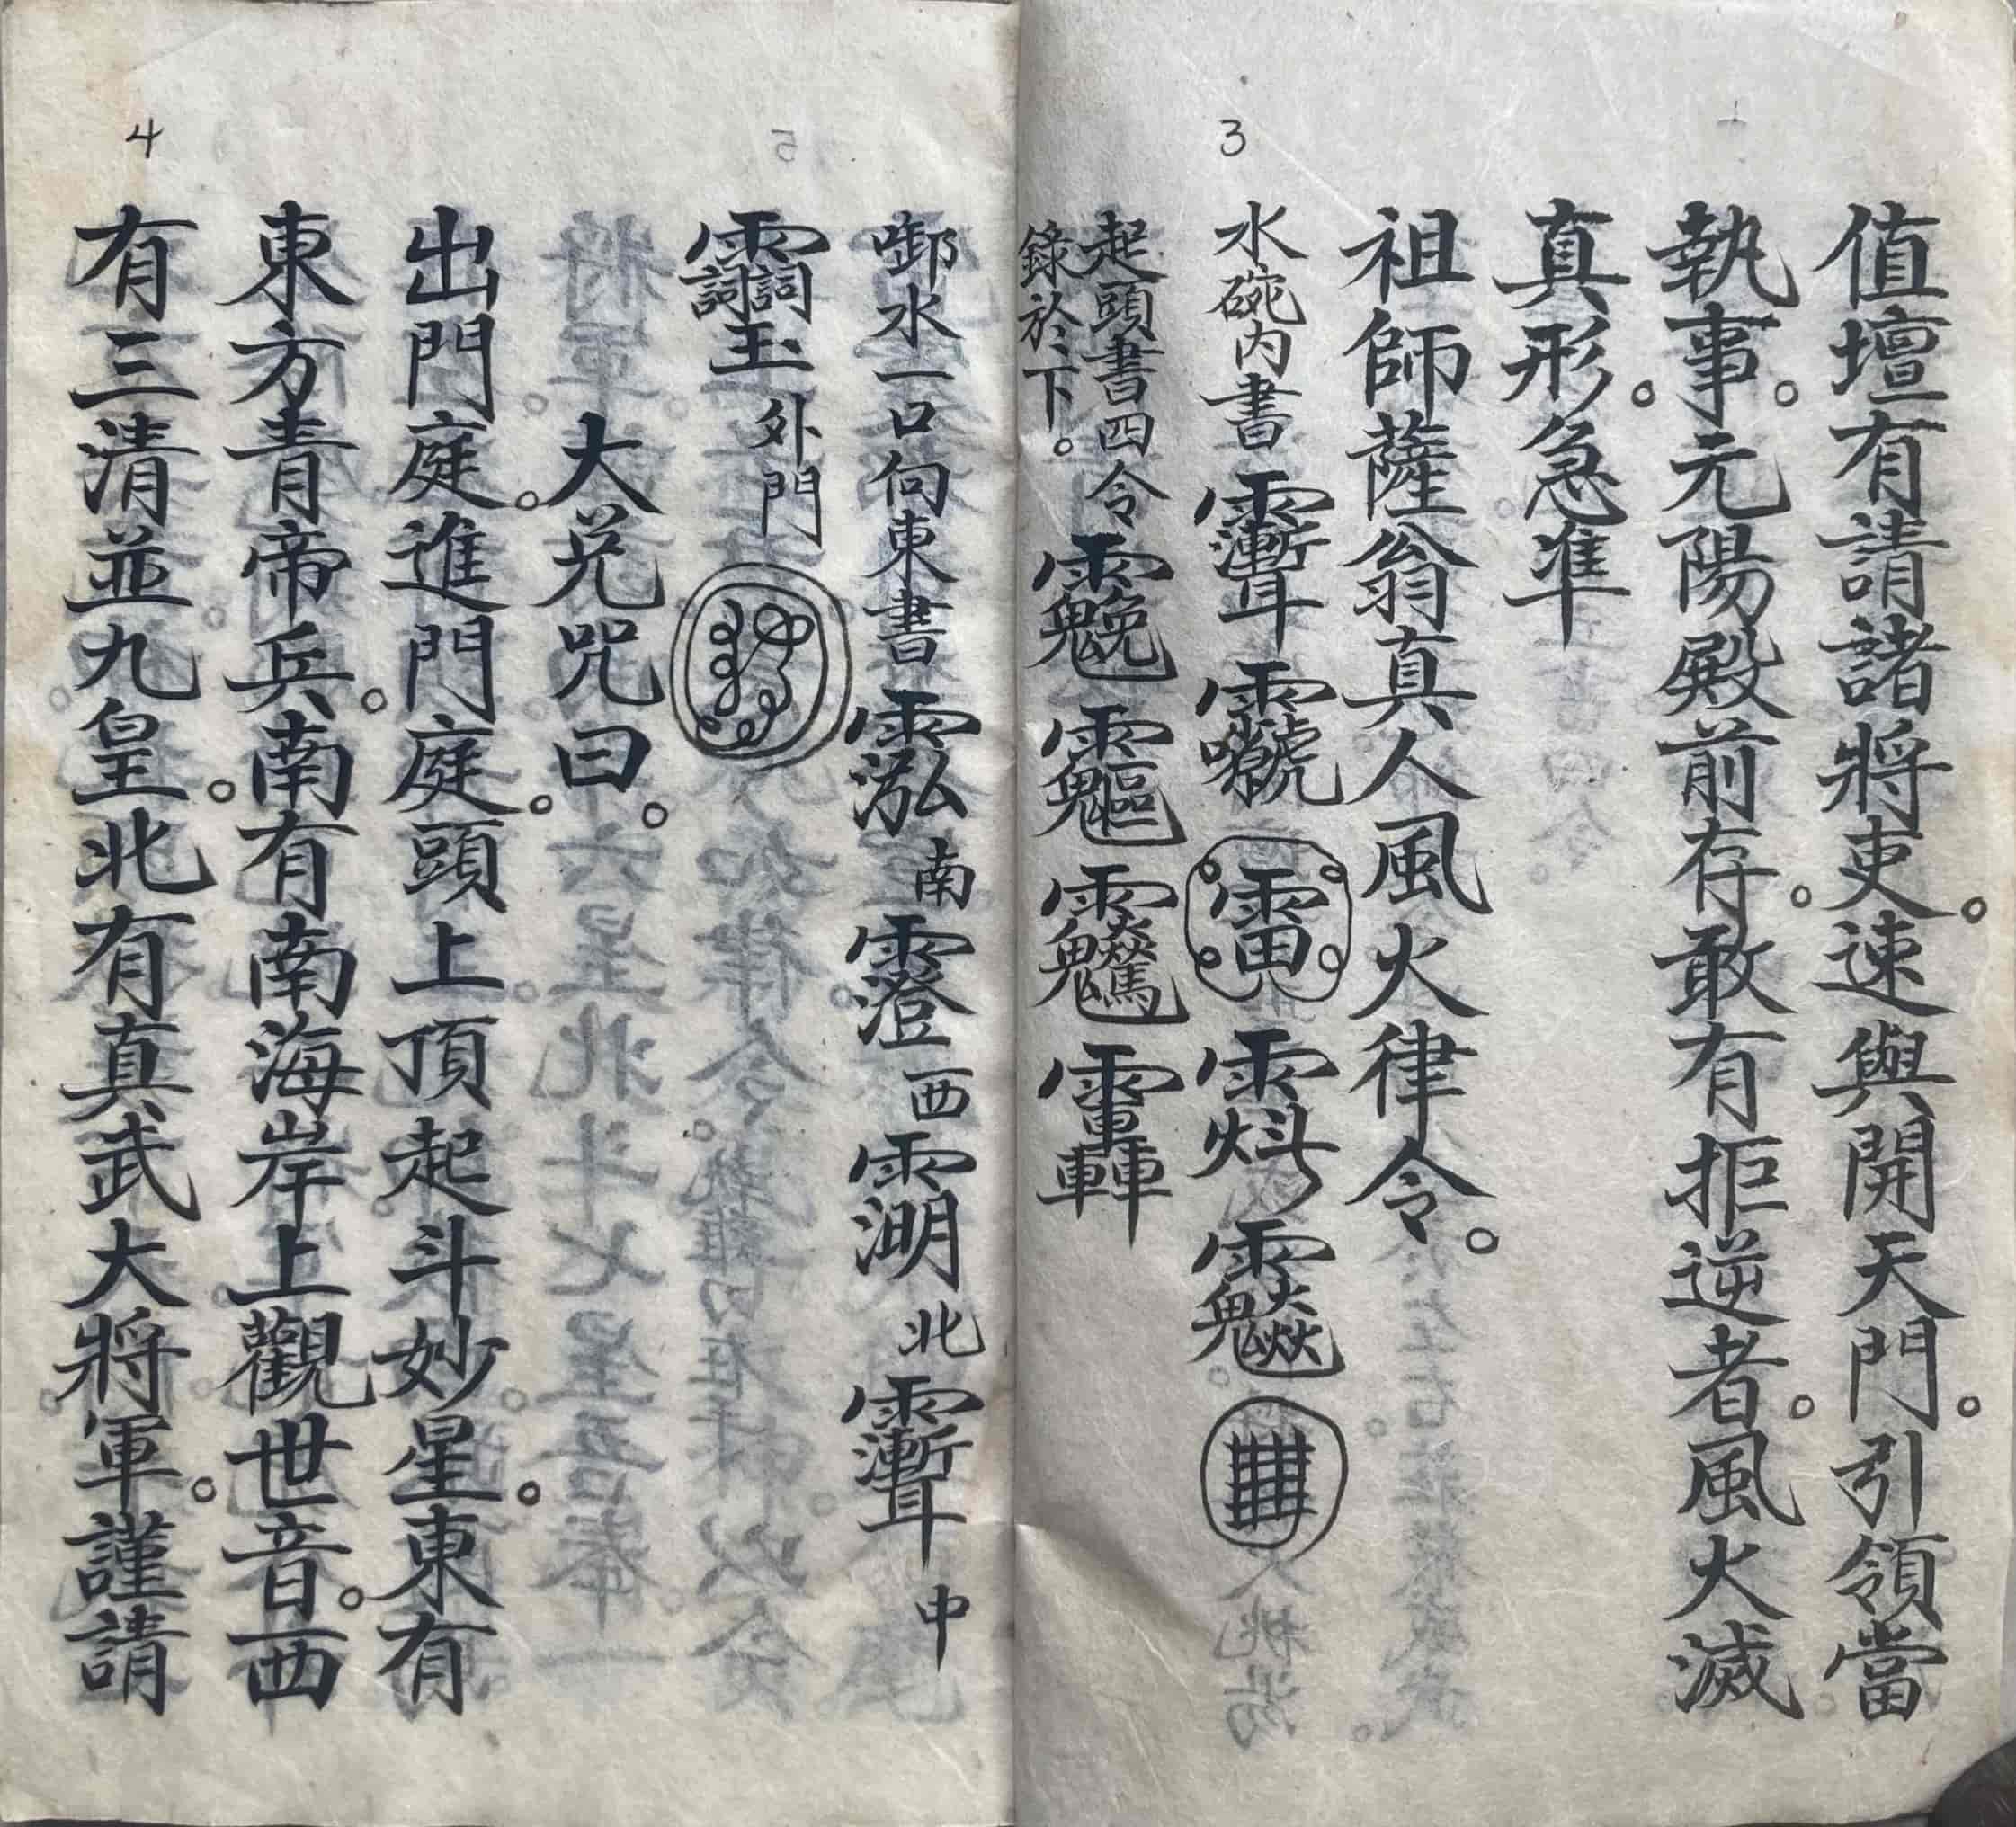 3
值壇有請諸將吏。速與開天門。引領當
執事。元陽殿前存。敢有拒逆者。風火滅
真形。急準
祖師薩翁真人風火律令。
水碗內書
雷
起頭書四令
錄於下。
啣水一口向東書 南 西 北 中
外門
大咒咒曰。
出門庭。進門庭。頭上頂起斗妙星。東有
東方青帝兵。南有南海岸上觀世音。西
有三清並九皇。北有真武大將軍。謹請
4